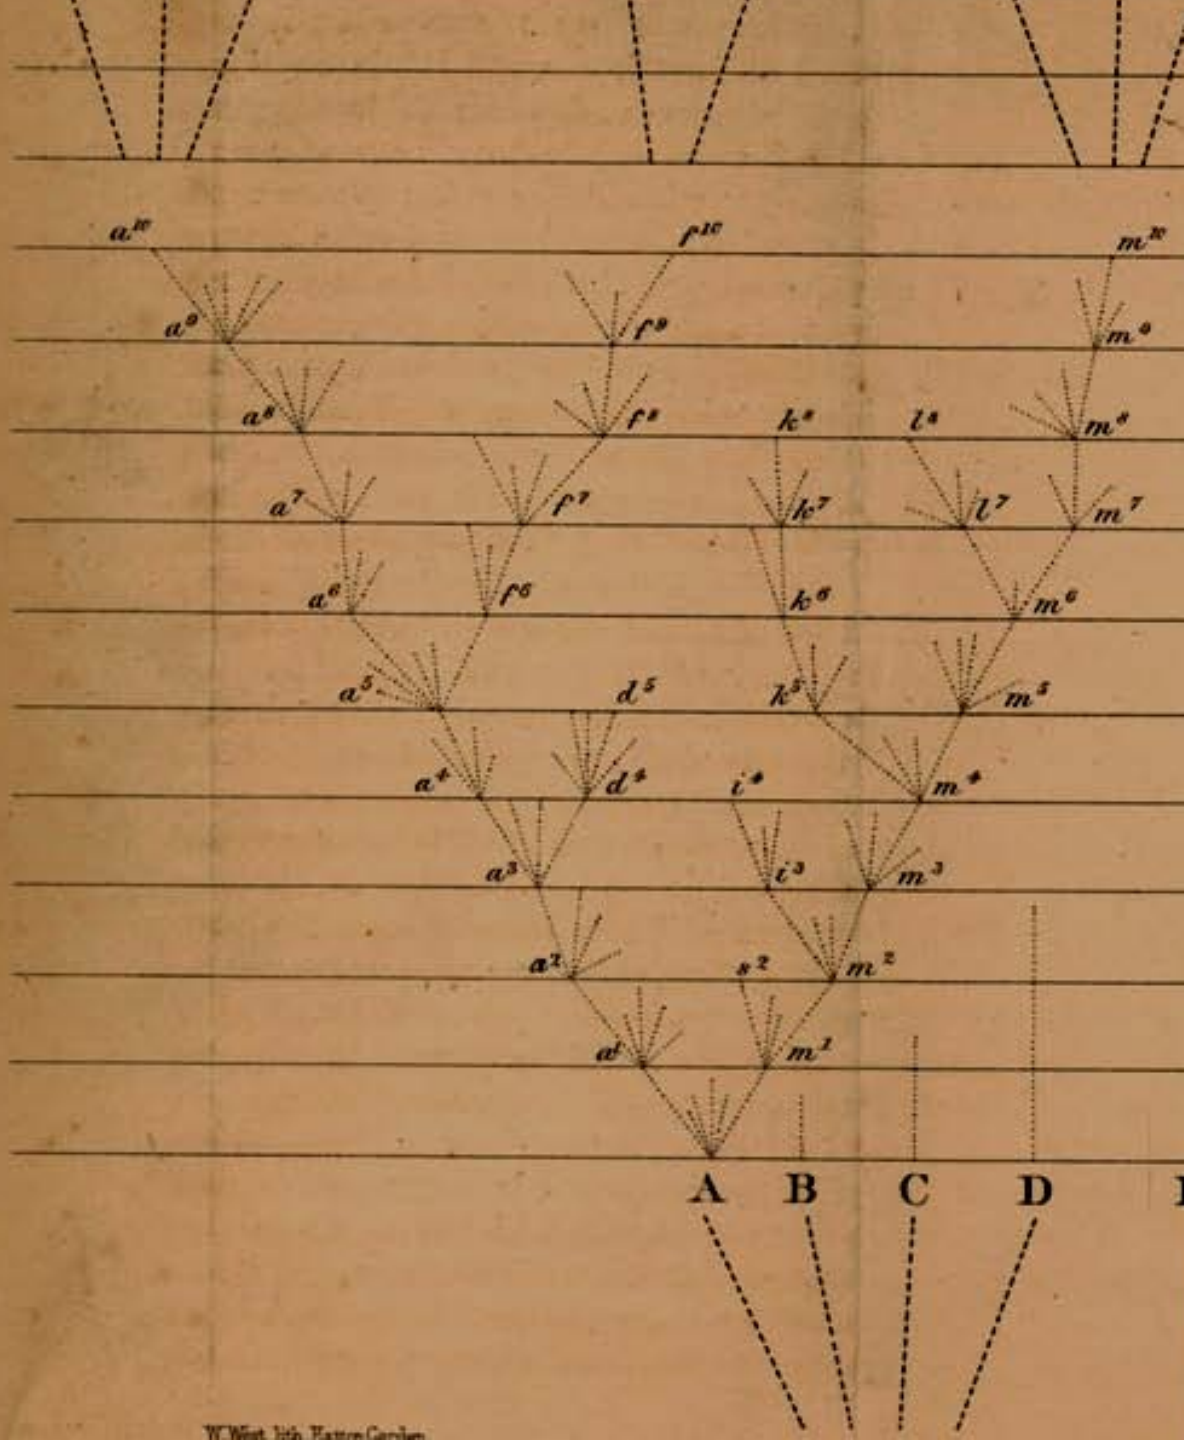 a¹⁰ f¹⁰ m¹⁰
a⁹ f⁹ m⁹
a⁸ f⁸ k⁸ l⁸ m⁸
a⁷ f⁷ k⁷ l⁷ m⁷
a⁶ f⁶ k⁶ m⁶
a⁵ d⁵ k⁵ m⁵
a⁴ d⁴ i⁴ m⁴
a³ i³ m³
a² s² m²
a¹ m¹
A B C D
W. West lith. Hatton Garden